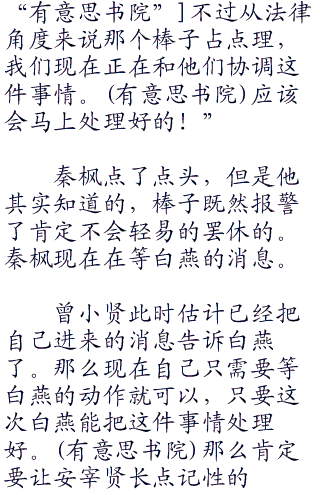 “有意思书院”]不过从法律
角度来说那个棒子占点理，
我们现在正在和他们协调这
件事情。(有意思书院)应该
会马上处理好的！”
秦枫点了点头，但是他
其实知道的，棒子既然报警
了肯定不会轻易的罢休的。
秦枫现在在等白燕的消息。
曾小贤此时估计已经把
自己进来的消息告诉白燕
了。那么现在自己只需要等
白燕的动作就可以，只要这
次白燕能把这件事情处理
好。(有意思书院)那么肯定
要让安宰贤长点记性的